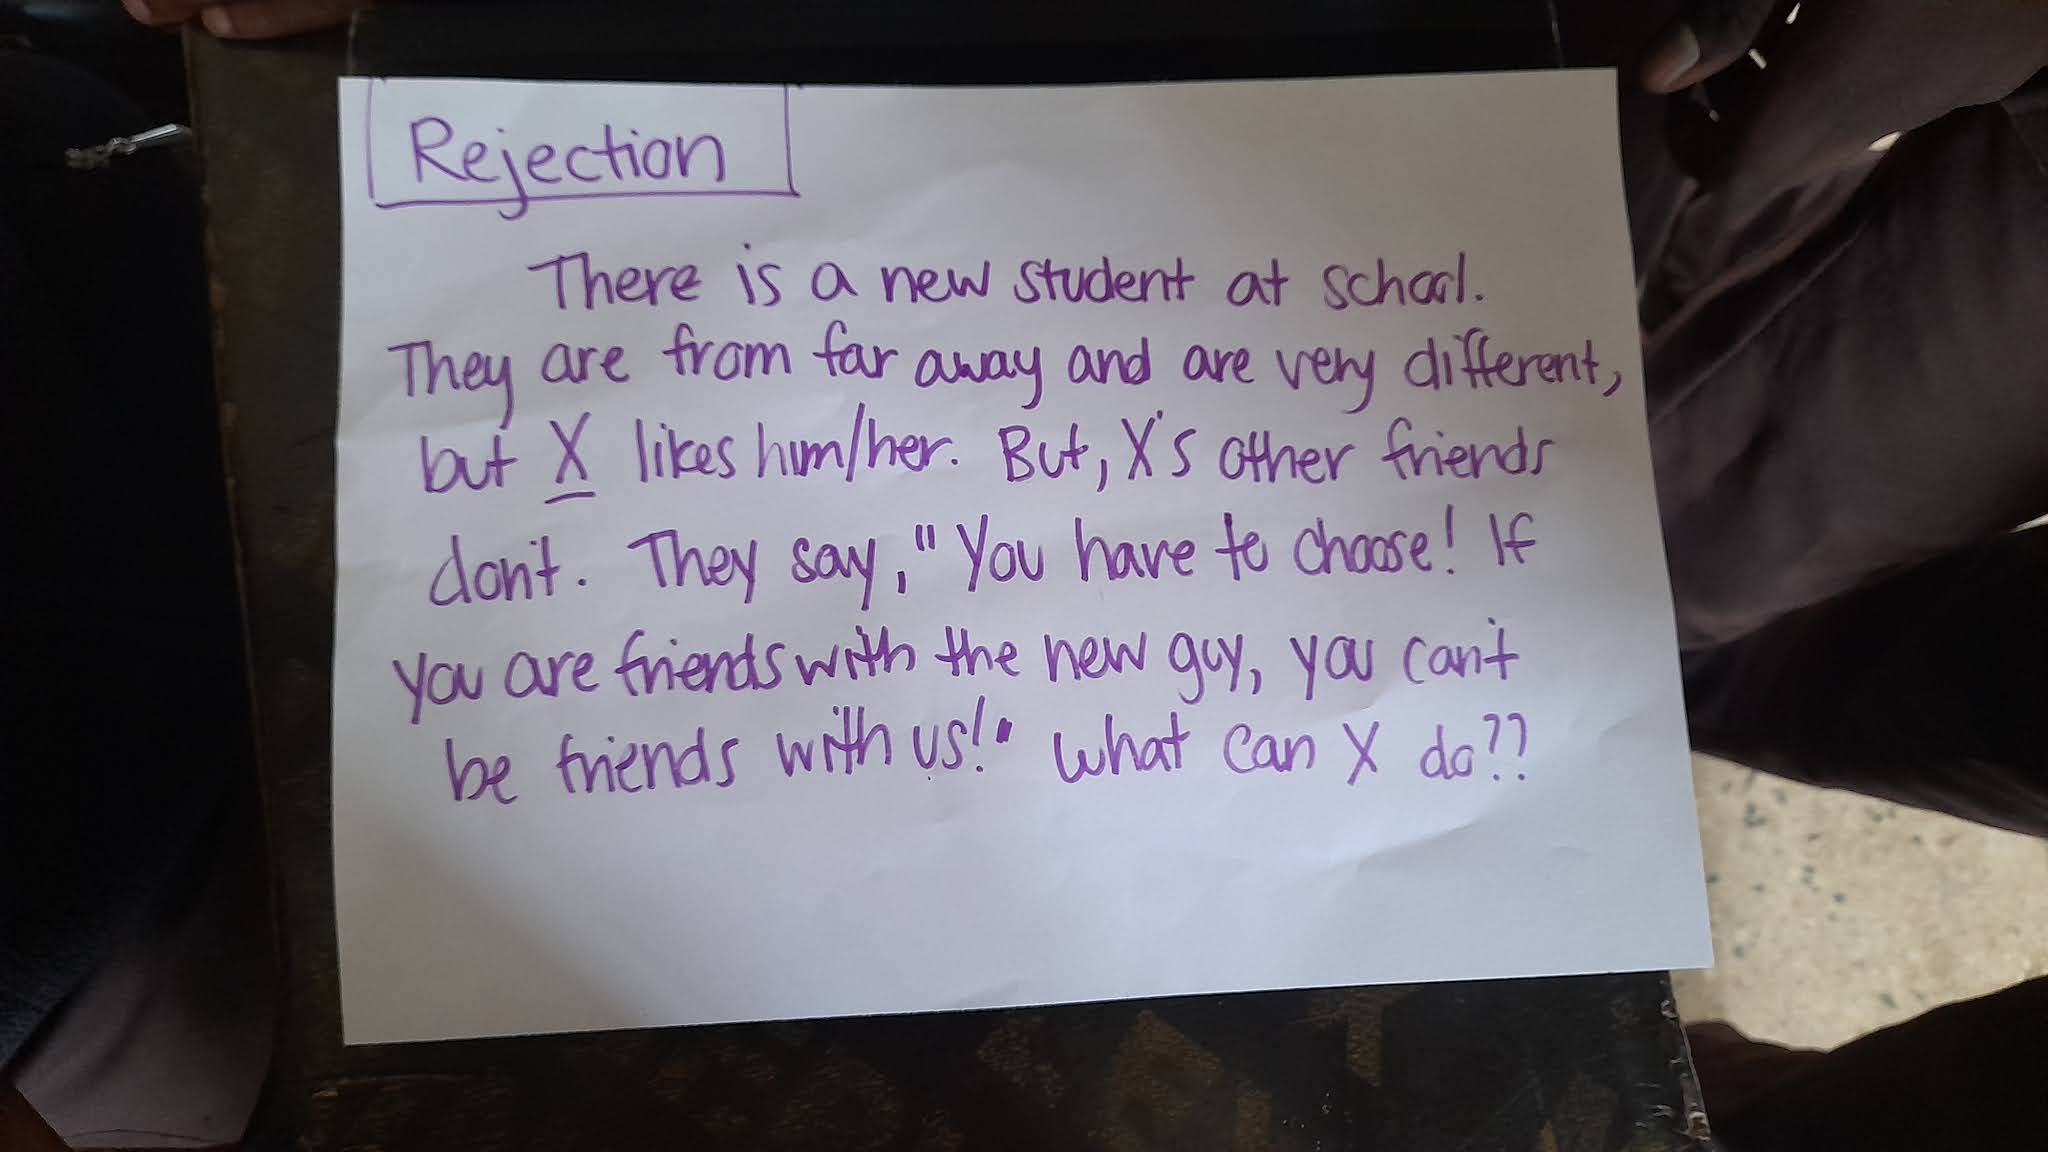 Rejection
There is a new student at school.
They are from far away and are very different,
but X likes him/her. But, X's other friends
don't. They say, "You have to choose! If
you are friends with the new guy, you can't
be friends with us!" What can X do??